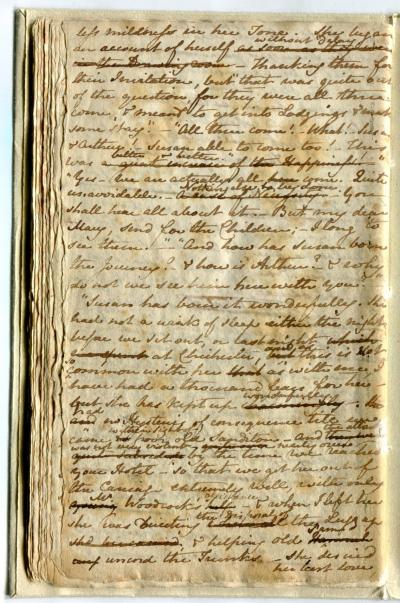 less mildness in her Tone. She began
an account of herself as without Delay.
Thanking them for
their Invitation, but that was quite out
of the question for they were all three
come, & meant to get into Lodgings & make
some stay."— "All three come!— What! Susan
& Arthur!— Susan able to come too! This
was better & better."
"Yes— we are actually all come. Quite
unavoidable.— Nothing else to be done.— You
shall hear all about it.— But my dear
Mary, send for the Children;— I long to
see them."— "And how has Susan born
the Journey?— & how is Arthur?— & why
do not we see him here with you?"—
"Susan has born it wonderfully. She
had not a wink of sleep either the night
before we set out, or last night
at Chichester, and as this is not so
common with her as with me, I
have had a thousand fears for her—
but she has kept up wonderfully.
had no Hysterics of consequence till we
came within sight of poor old Sanditon— and
the attack was not very violent— nearly over
by the time we reached
your Hotel— so that we got her out of
the Carriage extremely well, with only
Mr. Woodcock's assistance— & when I left her
she was directing the Disposal of the Luggage
& helping old Sam
uncord the Trunks.— She desired
her best Love